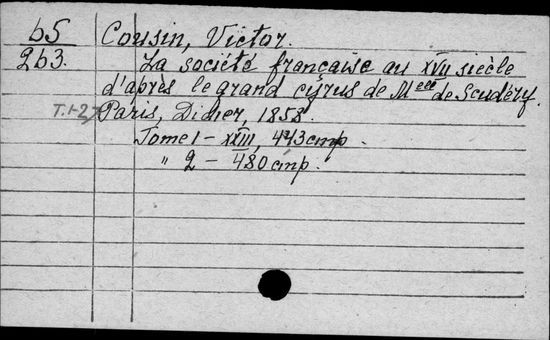 b5 Cousin, Victor.
2b3. La société française au XVII siècle
d'après le grand cyrus de Melle de Scudéry.
T.1-2 Paris, Didier, 1858.
Tome 1 – XXIII, 443 стр.
„ 2 – 480 стр.